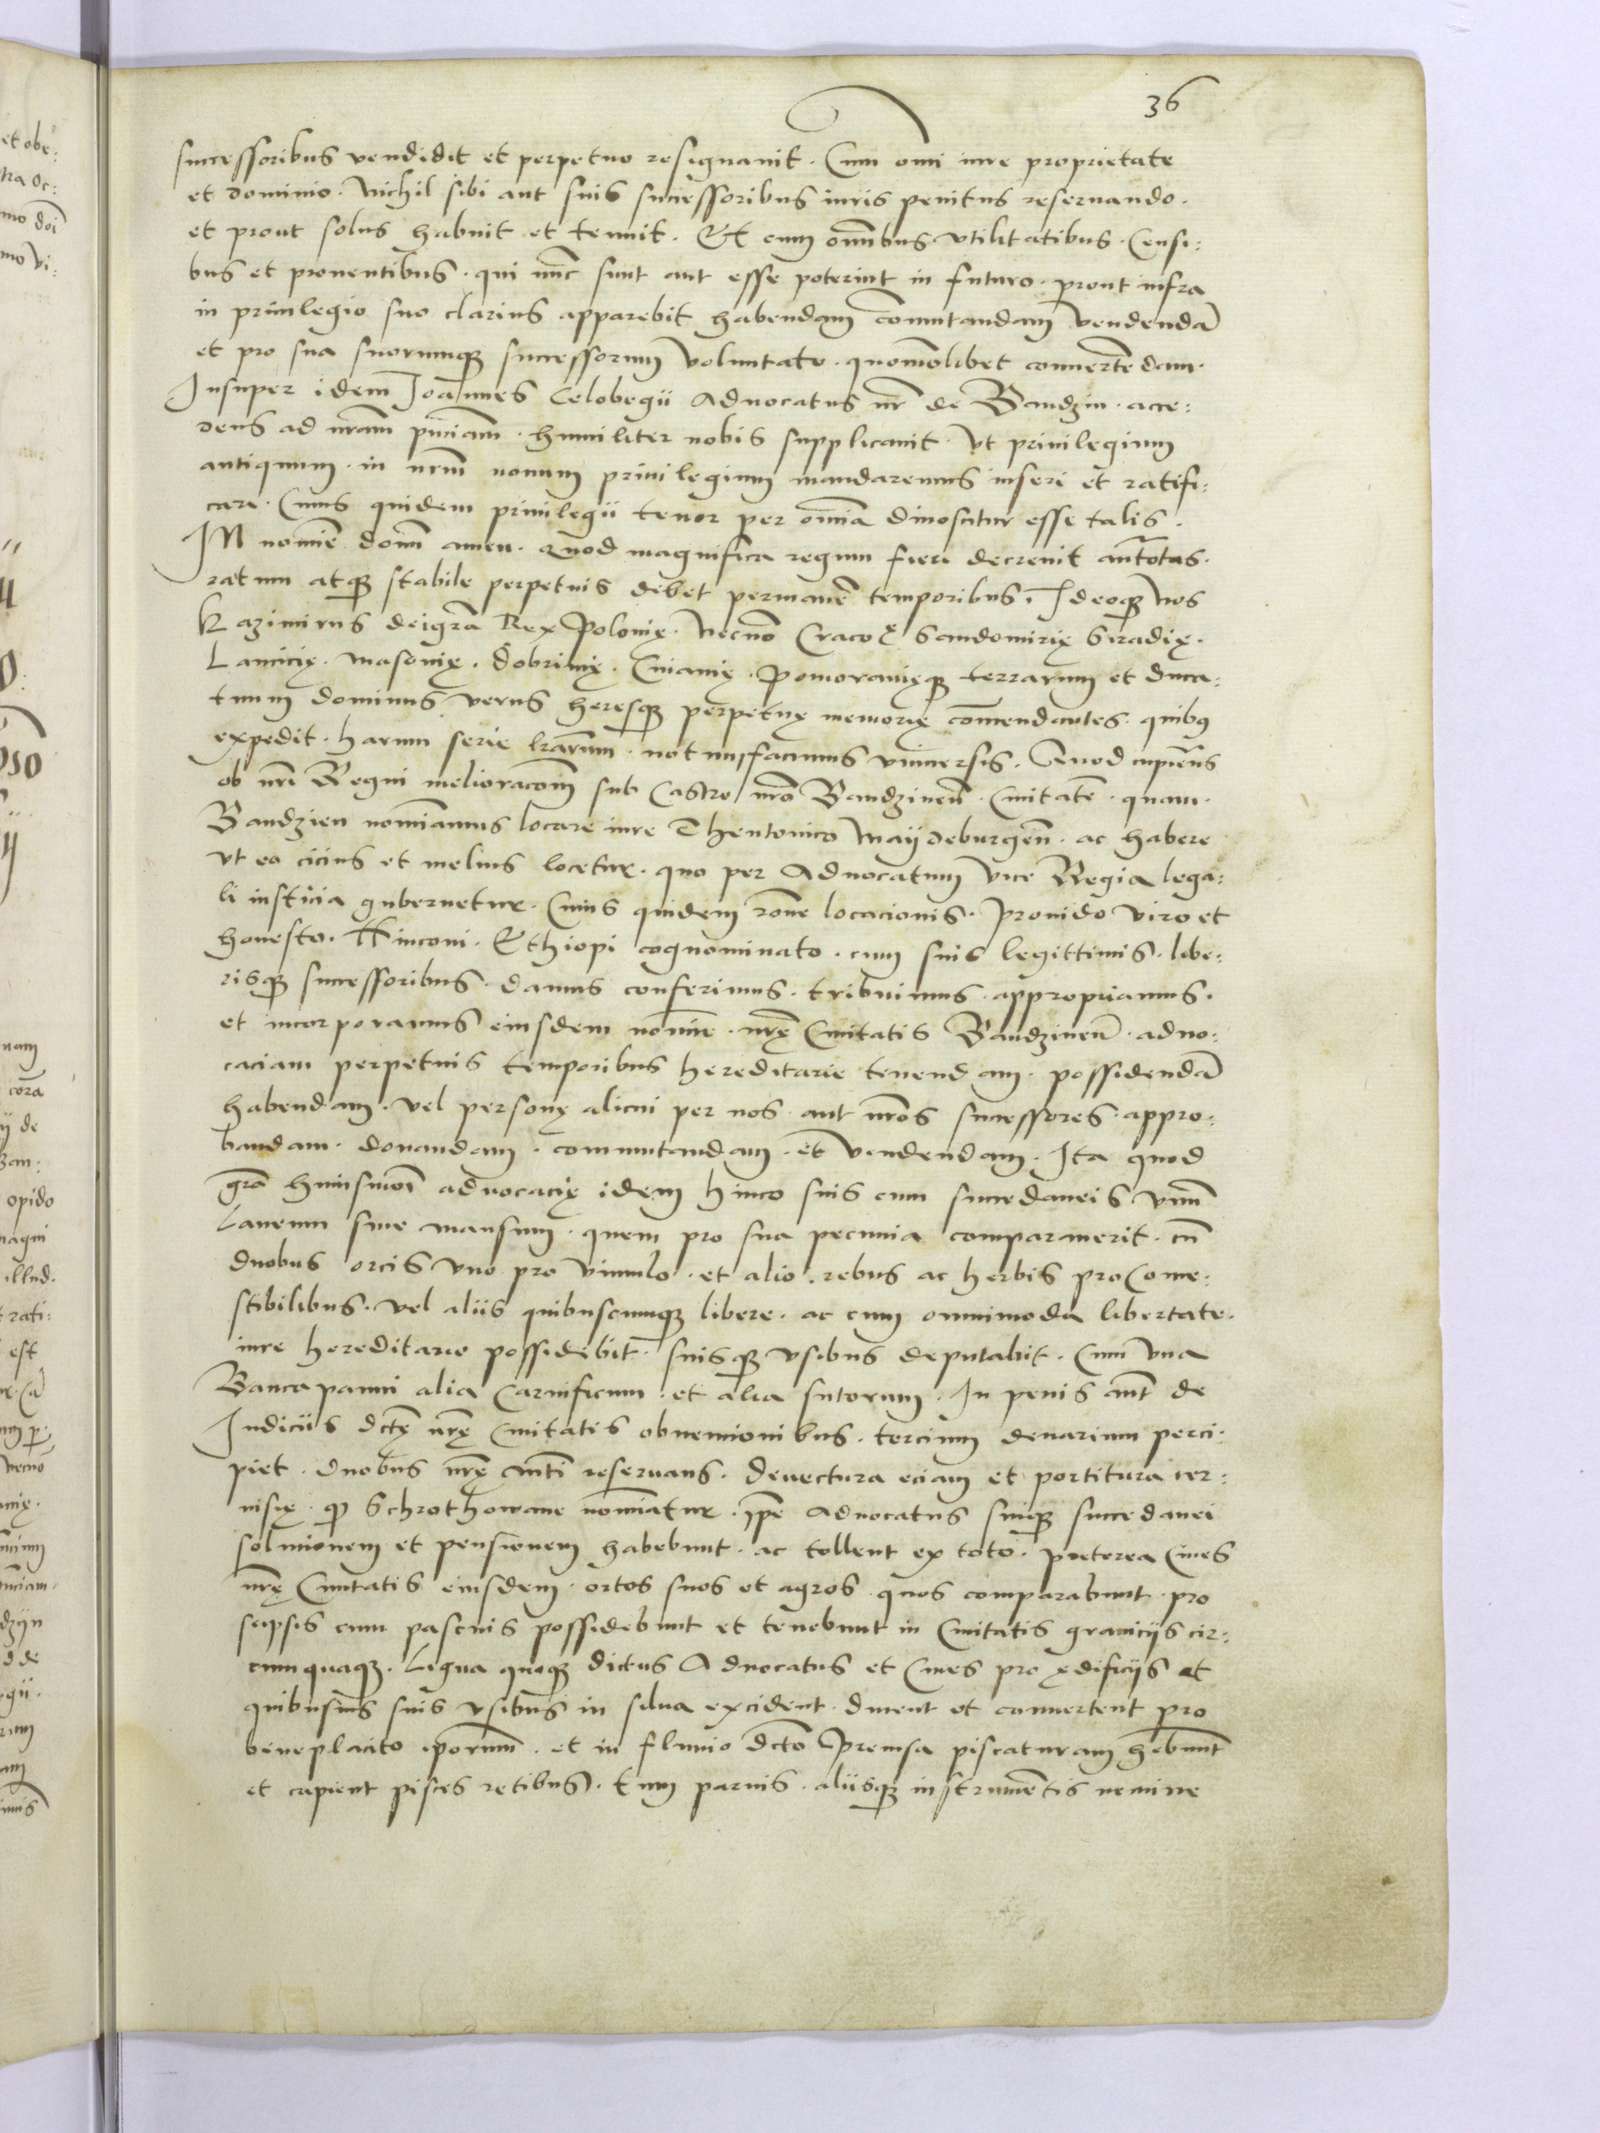 36
successoribus vendidit et perpetuo resignauit. Cum omi iure proprietate
et dominio. Nichil sibi aut suis successoribus iuris penitus reseruando.
et prout solus habuit et tenuit. Et cum omnibus vtilitatibus. Censi:
bus et prouentibus. qui nunc sunt aut esse poterint in futuro. prout infra
in priuilegio suo clarius apparebit habendam comutandam vendendā
et pro sua suorumque successorum voluntate. quomolibet conuertendam.
Insuper idem Joannes Celobegii Aduocatus nr̄ de Bandzin. acce:
dens ad nram̄ pn̄ciam. humiliter nobis supplicauit. vt priuilegium
antiquum. in nrm̄ nouum priuilegium mandaremus inseri et ratifi:
cari. Cuius quidem priuilegii tenor per omīa dinoscitur esse talis.
IN nomīe domī amen. Quod magnifica regum fieri decreuit auc̄totas.
ratum atque stabile perpetuis debet permanē temporibus, Ideoque Nos
Kazimirus dei grā Rex Polonię. Necnō Cracoę Sandomirię Siradię.
Lancicię. Masouię. dobrinię. Cuiauię. Pomoranięque terrarum et duca:
tuum dominus verus heresque perpetuę memorię cōmendantes. quibus
expedit. harum serie lrarum̄. notum facimus vniuersis. Quod cupientes
ob nr̄i Regni melioracōm sub Castro nrō Bandzinen̄. Ciuitatē. quam.
Bandzien nomīamus locare iure Theutonico Maydeburgen̄. ac habere
vt eo cicius et melius locetur. quo per Aduocatum vice Regia lega:
li iusticia gubernetur. Cuius quidem rōne locacionis. Prouido viro et
honesto. Hinconi. Ethiopi cognominato. cum suis legittimis. libe:
risque successoribus. damus conferimus. tribuimus. appropriamus.
et incorporamus eiusdem nomīe. nrę̄ Ciuitatis Bandzinen̄. aduo:
caciam perpetuis temporibus hereditarie tenendam. possidendā
habendam. vel personę alicui per nos aut nrōs successores. appro:
bandam. donandam. commutandam. et vendendam. Ita quod
grā huiusmōi aduocacię idem Hinco suis cum succedaneis vnum̄
Laneum siue mansum. quem pro sua pecunia comparauerit. cū
duobus orcis vno pro viunlo. et alio. rebus ac herbis pro Come:
stibilibus. vel aliis quibuscunque libere. ac cum omnimoda libertate.
iure hereditario possidebit. suisque vsibus deputabit. Cum vna
Banca panni alia Carnificum. et alia sutorum. In penis aut̄ de
Iudiciis dctę̄ nrę̄ Ciuitatis obuencionibus. tercium denarium perci:
piet. duobus nrę̄ reseruans. Deuectura eciam et portitura cer:
uisię. Schrothowane nomīatur. ipē Aduocatus suique succedanei
solucionem et pensionem habebunt. ac tollent ex toto. Preterea Ciues
nrę̄ Ciuitatis eiusdem. ortos suos et agros. quos comparabunt. pro
seipsis cum pascuis possidebunt et tenebunt in Ciuitatis granicijs cir:
cumquaque. Ligna quoque dictus Aduocatus et Ciues pro ędificijs et
quibusuis suis vsibus in silua excident. ducent et conuertent pro
beneplacito ipsorum̄. et in fluuio dctō Premsa piscaturam hebunt̄
et capient pisces retibus. tum paruis. aliisque instrumētis nemine